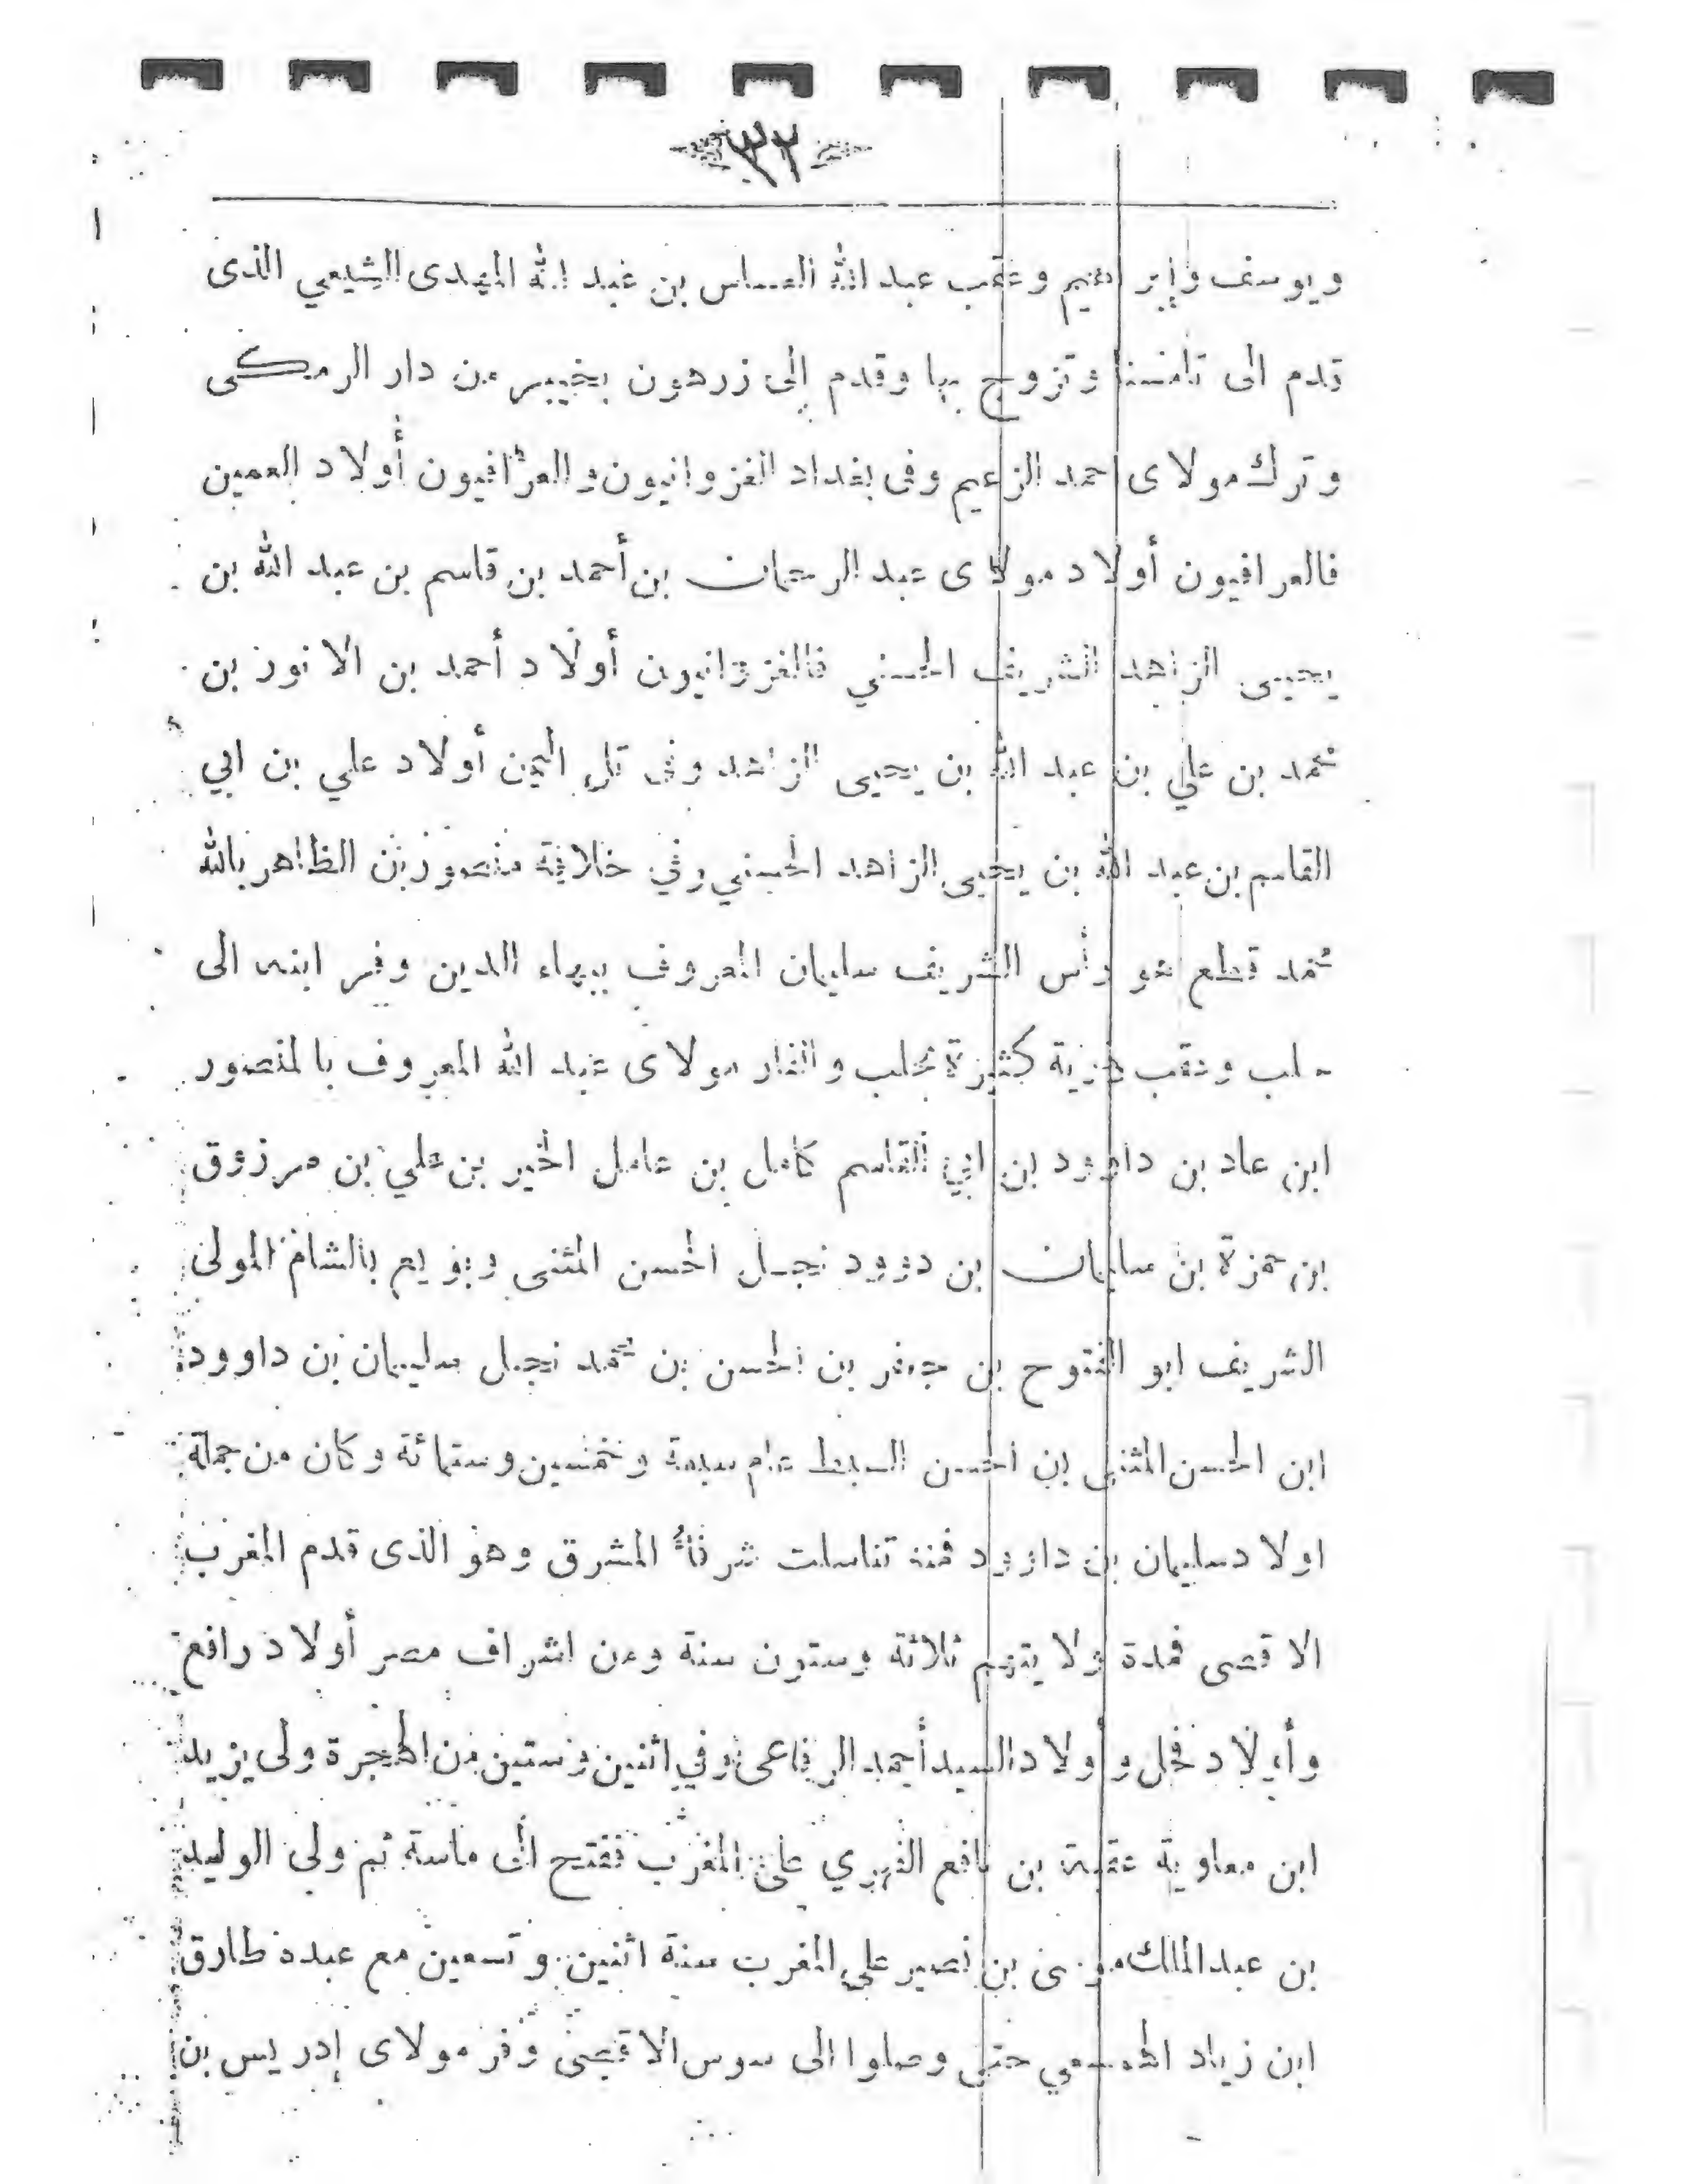 ٣٢
ويوسف وإبراهيم وعقب عبد الله العساس بن عبد الله المهدى الشيعي الذى
قدم الى تامسنا وتزوج بها وقدم إلى زرهون بخيبر من دار الرمكى
وترك مولاى احمد الزعيم وفى بغداد الغزوانيون والعراقيون أولاد العمين
فالعراقيون أولاد مولاى عبد الرحمان بن أحمد بن قاسم بن عبد الله بن
يحيى الزاهد الشريف الحسني فالغزوانيون أولاد أحمد بن الانور بن
محمد بن علي بن عبد الله بن يحيى الزاهد وفى تل اليمن أولاد علي بن ابي
القاسم بن عبد الله بن يحيى الزاهد الحسني وفي خلافة منصور بن الظاهر بالله
محمد قطع هو رأس الشريف سليمان المعروف ببهاء الدين وفر ابنه الى
حلب وعقب ذرية كثيرة بحلب والفار مولاى عبد الله المعروف بالمنصور
ابن عاد بن داوود بن ابي القاسم كامل بن عامل الخير بن علي بن مرزوق
بن حمزة بن سليمان بن داوود نجل الحسن المثنى وبويع بالشام المولى
الشريف ابو الفتوح بن جعفر بن الحسن بن محمد نجل سليمان بن داوود
ابن الحسن المثنى بن الحسن السبط عام سبعة وخمسين وستمائة وكان من جملة
اولاد سليمان بن داوود فمنه تناسلت شرفاء المشرق وهو الذى قدم المغرب
الاقصى فمدة ولايتهم ثلاثة وستون سنة ومن اشراف مصر أولاد رافع
وأولاد فحل وأولاد السيد أحمد الرفاعى وفي اثنين وستين من الهجرة ولى يزيد
ابن معاوية عقبة بن نافع الفهري على المغرب ففتح الى ماسة ثم ولى الوليد
بن عبد الملك موسى بن نصير على المغرب سنة اثنين وتسعين مع عبده طارق
ابن زياد حتى وصلوا الى سوس الاقصى وفر مولاى إدريس بن